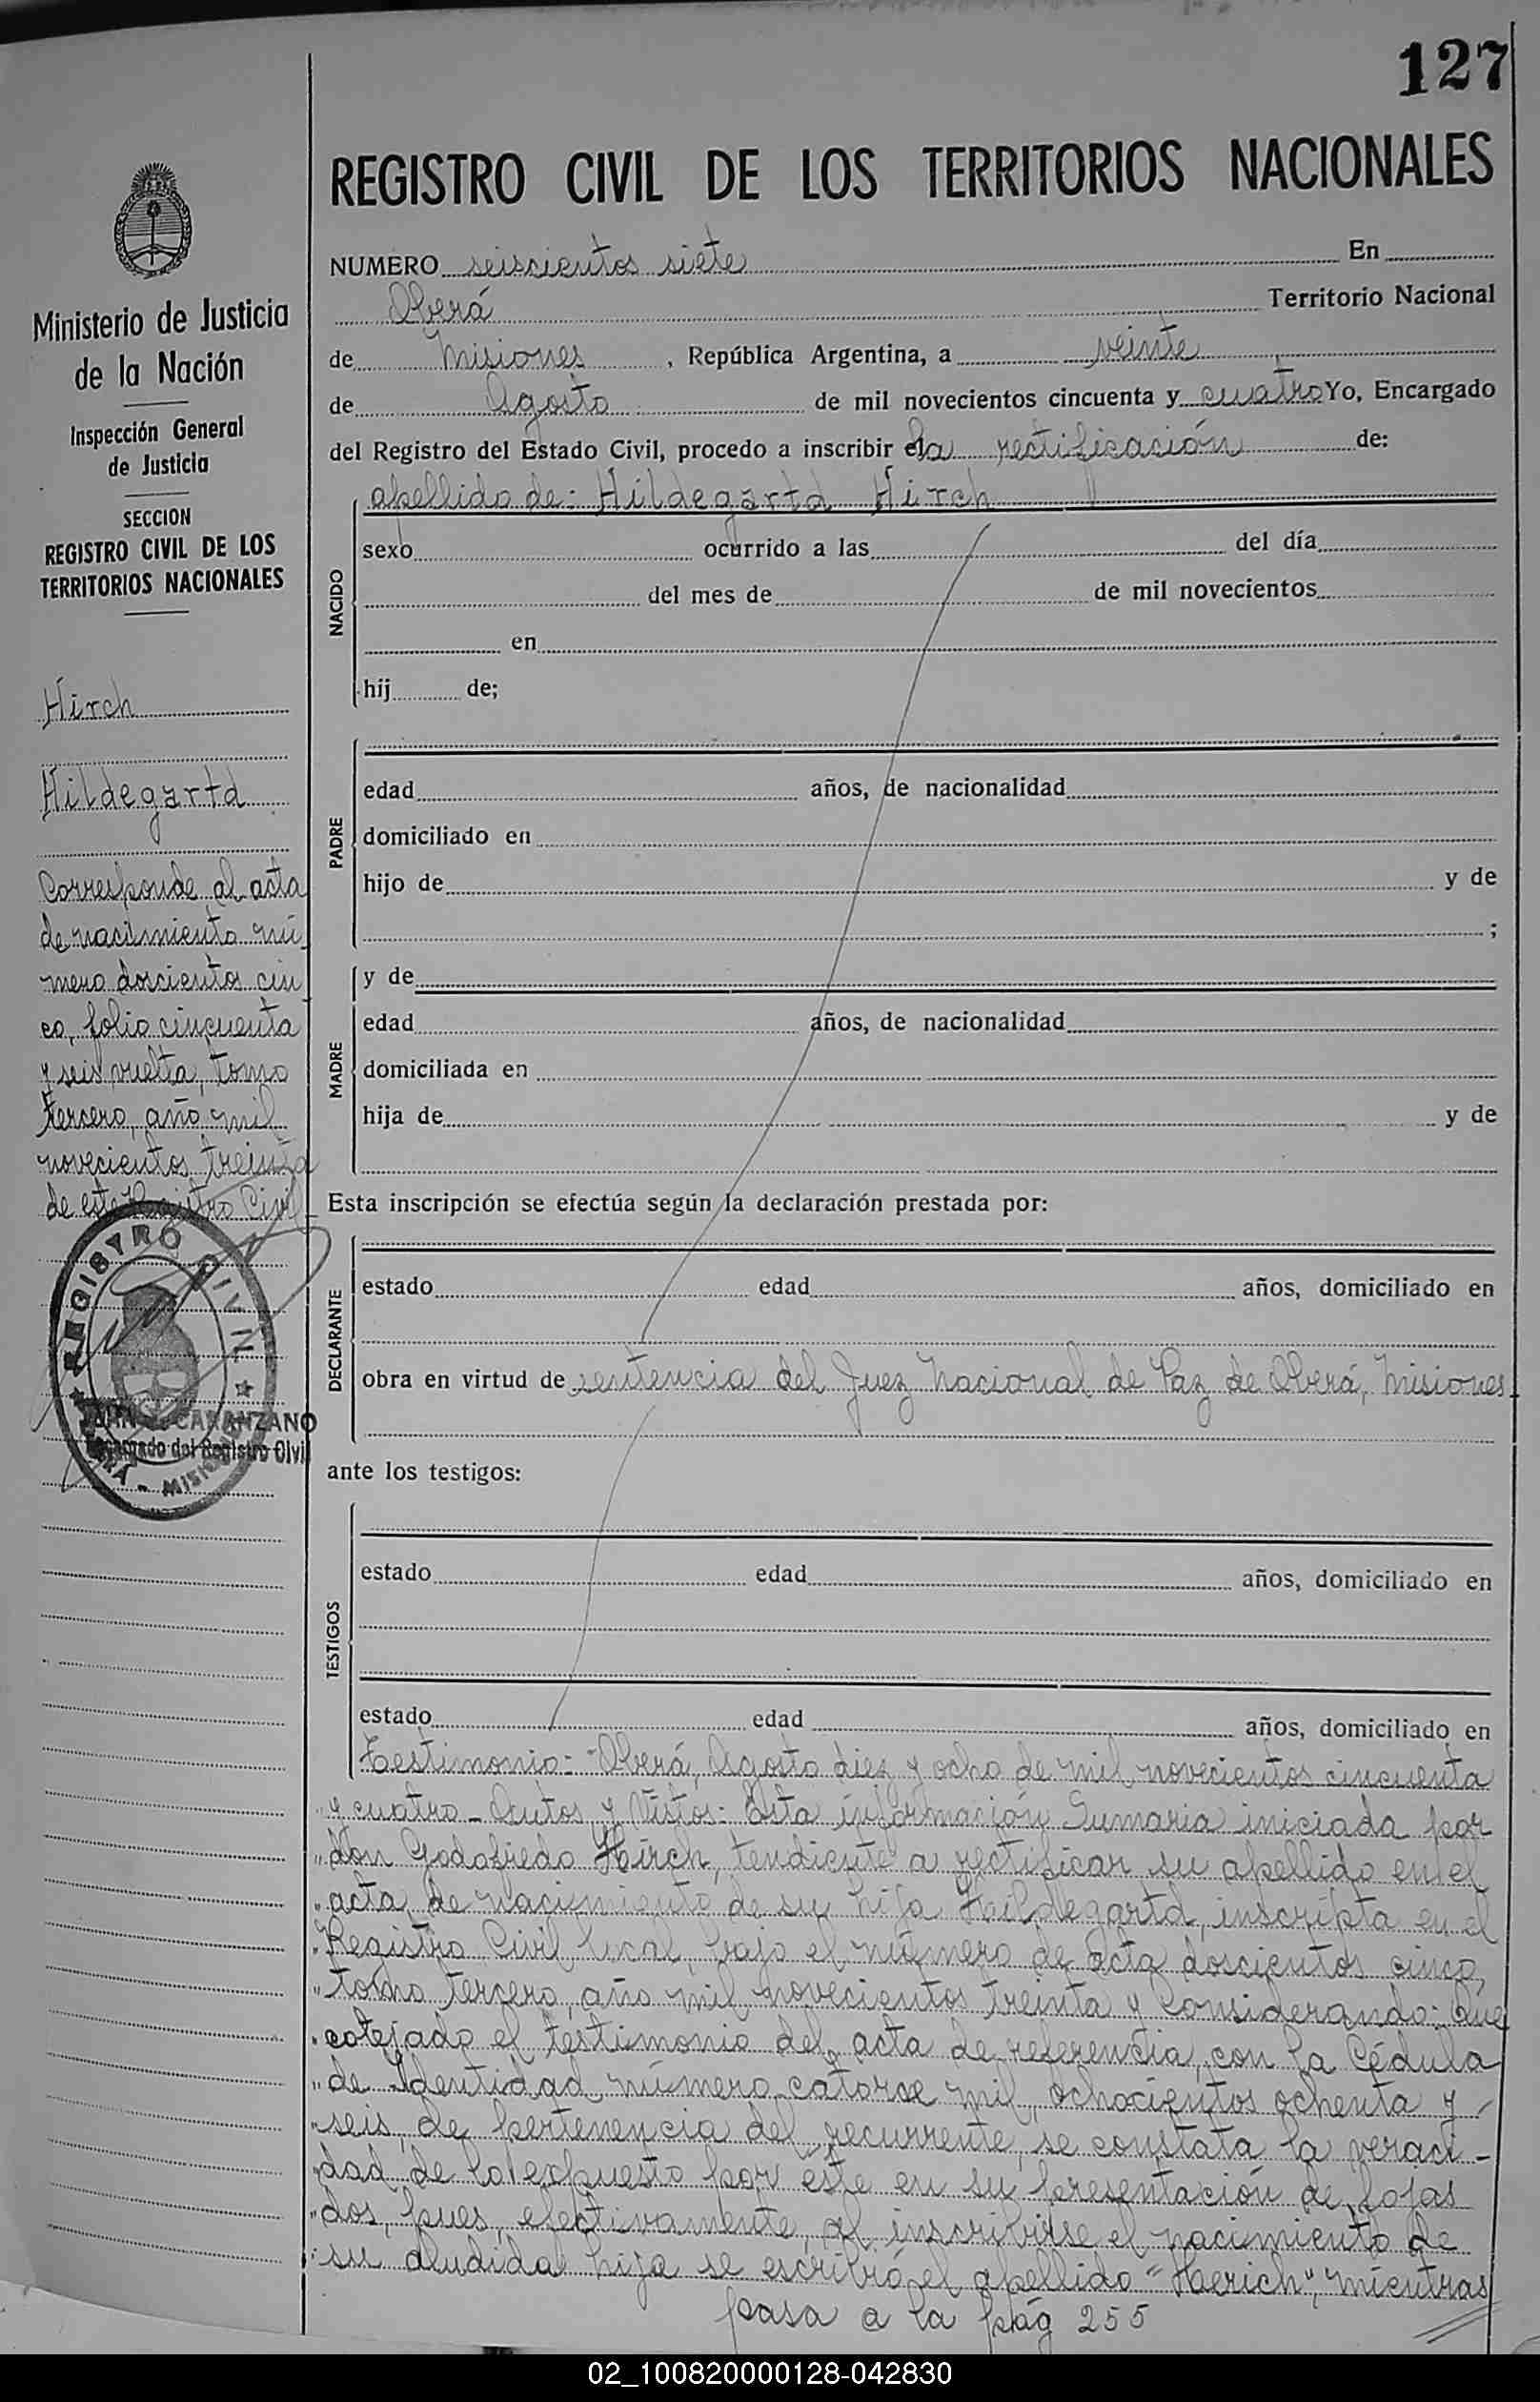 127
REGISTRO CIVIL DE LOS TERRITORIOS NACIONALES
NUMERO seiscientos siete En
Oberá Territorio Nacional
de Misiones, República Argentina, a veinte
de Agosto de mil novecientos cincuenta y cuatro Yo, Encargado
del Registro del Estado Civil, procedo a inscribir el la rectificación de:
apellido de: Hildegartd Hirch
NACIDO
sexo ocurrido a las del día
del mes de de mil novecientos
en
hij de;
PADRE
edad años, de nacionalidad
domiciliado en
hijo de y de
;
MADRE
y de
edad años, de nacionalidad
domiciliada en
hija de y de
Esta inscripción se efectúa según la declaración prestada por:
DECLARANTE
estado edad años, domiciliado en
obra en virtud de sentencia del Juez Nacional de Paz de Oberá, Misiones
ante los testigos:
TESTIGOS
estado edad años, domiciliado en
estado edad años, domiciliado en
Testimonio: "Oberá, Agosto diez y ocho de mil novecientos cincuenta
"y cuatro - Autos y Vistos: Esta información Sumaria iniciada por
"don Godofredo Hirch, tendiente a rectificar su apellido en el
"acta de nacimiento de su hija Hildegartd, inscripta en el
"Registro Civil local bajo el número de acta doscientos cinco,
"tomo tercero, año mil novecientos treinta y Considerando: Que
"cotejado el testimonio del acta de referencia, con la Cédula
"de Identidad número catorce mil, ochocientos ochenta y
"seis, de pertenencia del recurrente, se constata la veraci-
"dad de lo expuesto por éste en su presentación de fojas
"dos, pues, efectivamente, al inscribirse el nacimiento de
"su aludida hija se escribió el apellido "Herich", mientras
pasa a la pág 255
Ministerio de Justicia
de la Nación
Inspección General
de Justicia
SECCION
REGISTRO CIVIL DE LOS
TERRITORIOS NACIONALES
Hirch
Hildegartd
Corresponde al acta
de nacimiento nú
mero doscientos cin
co, folio cincuenta
y seis vuelta, tomo
tercero, año mil
novecientos treinta
de este Registro Civil
REGISTRO CIVIL
CARANZANO
Encargado del Registro Civil
MISIONES
02_100820000128-042830